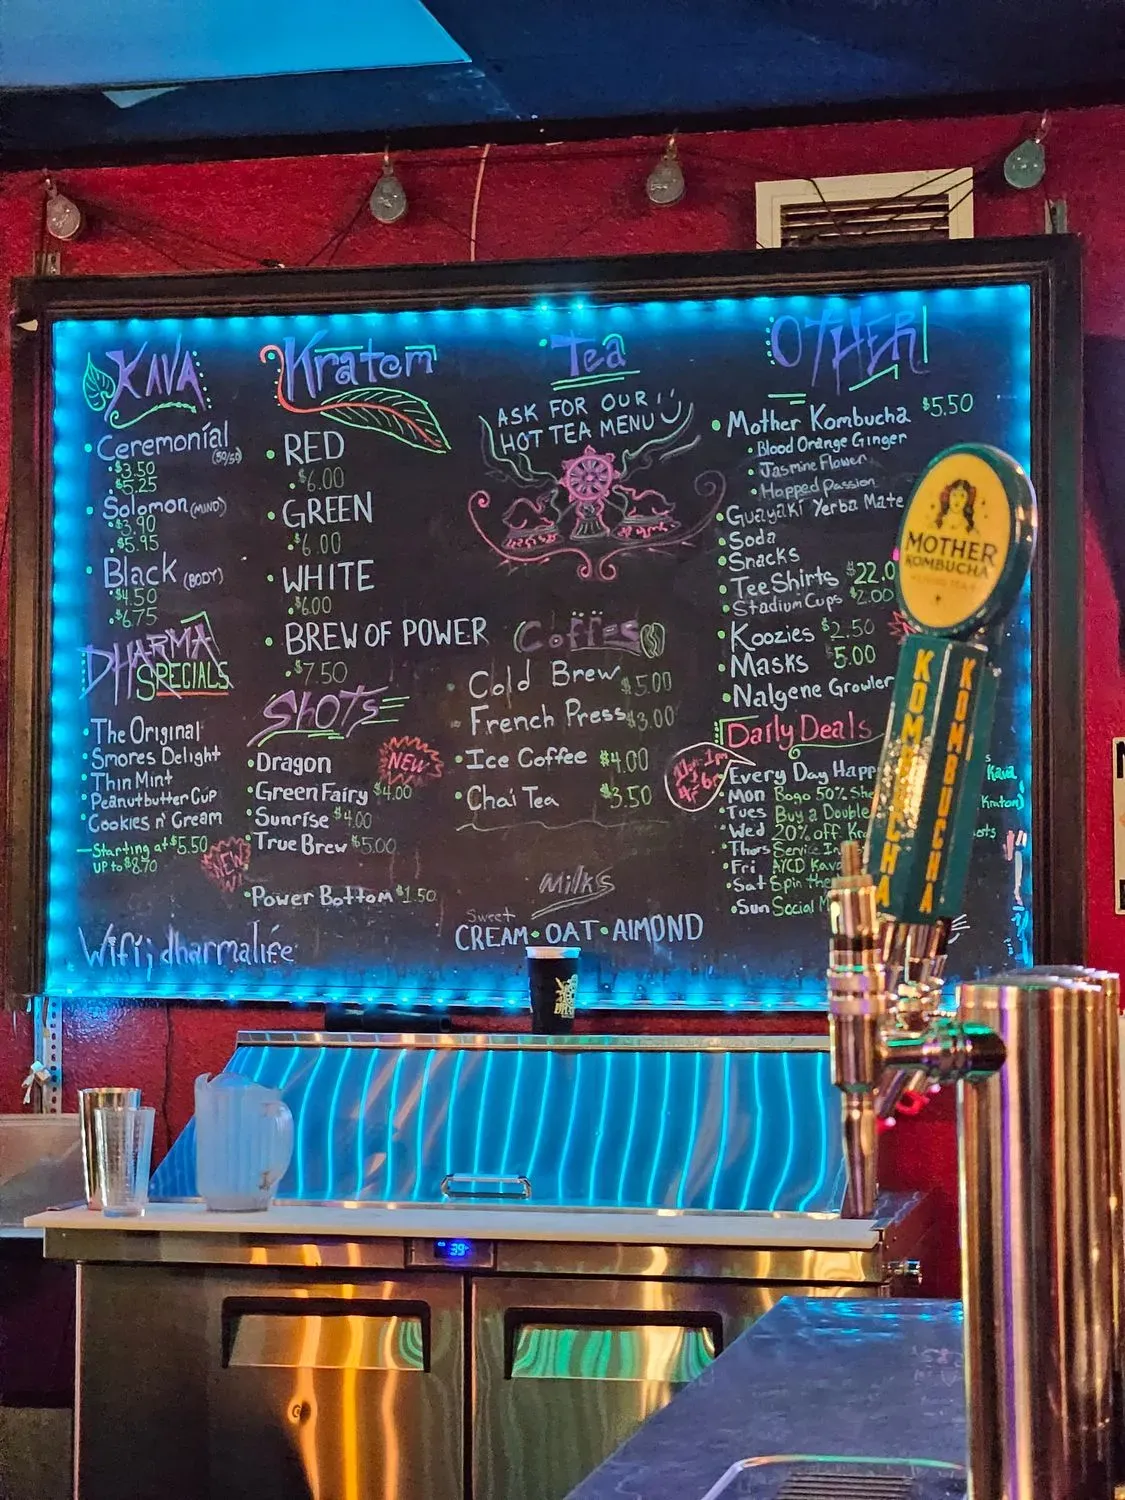 KAVA
Ceremonial (50/50)
$3.50
$5.25
Solomon (MIND)
$3.90
$5.95
Black (BODY)
$4.50
$6.75
DHARMA
SPECIALS
The Original
Smores Delight
Thin Mint
Peanutbutter Cup
Cookies n' Cream
Starting at $5.50
UP to $8.70
Wifi; dharmalife
Kratom
RED
$6.00
GREEN
$6.00
WHITE
$6.00
BREW OF POWER
$7.50
SHOTS
NEW
Dragon
Green Fairy $4.00
Sunrise $4.00
True Brew $5.00
NEW
Power Bottom $1.50
Tea
ASK FOR OUR
HOT TEA MENU
Coffee
Cold Brew $5.00
French Press $3.00
Ice Coffee $4.00
Chai Tea $3.50
Milks
Sweet
CREAM • OAT • AlMOND
OTHER
Mother Kombucha $5.50
Blood Orange Ginger
Jasmine Flower
Hopped Passion
Guayaki Yerba Mate
Soda
Snacks
Tee Shirts $22.0
Stadium Cups $2.00
Koozies $2.50
Masks $5.00
Nalgene Growler
Daily Deals
Every Day Happ
Kava
Mon Bogo 50% She
Kratom)
Tues Buy a Double
Wed 20% off Kra
Thurs Service In
Fri AYCD Kava
Sat Spin the
Sun Social M
MOTHER
KOMBUCHA
KOMBUCHA
KOMBUCHA
39